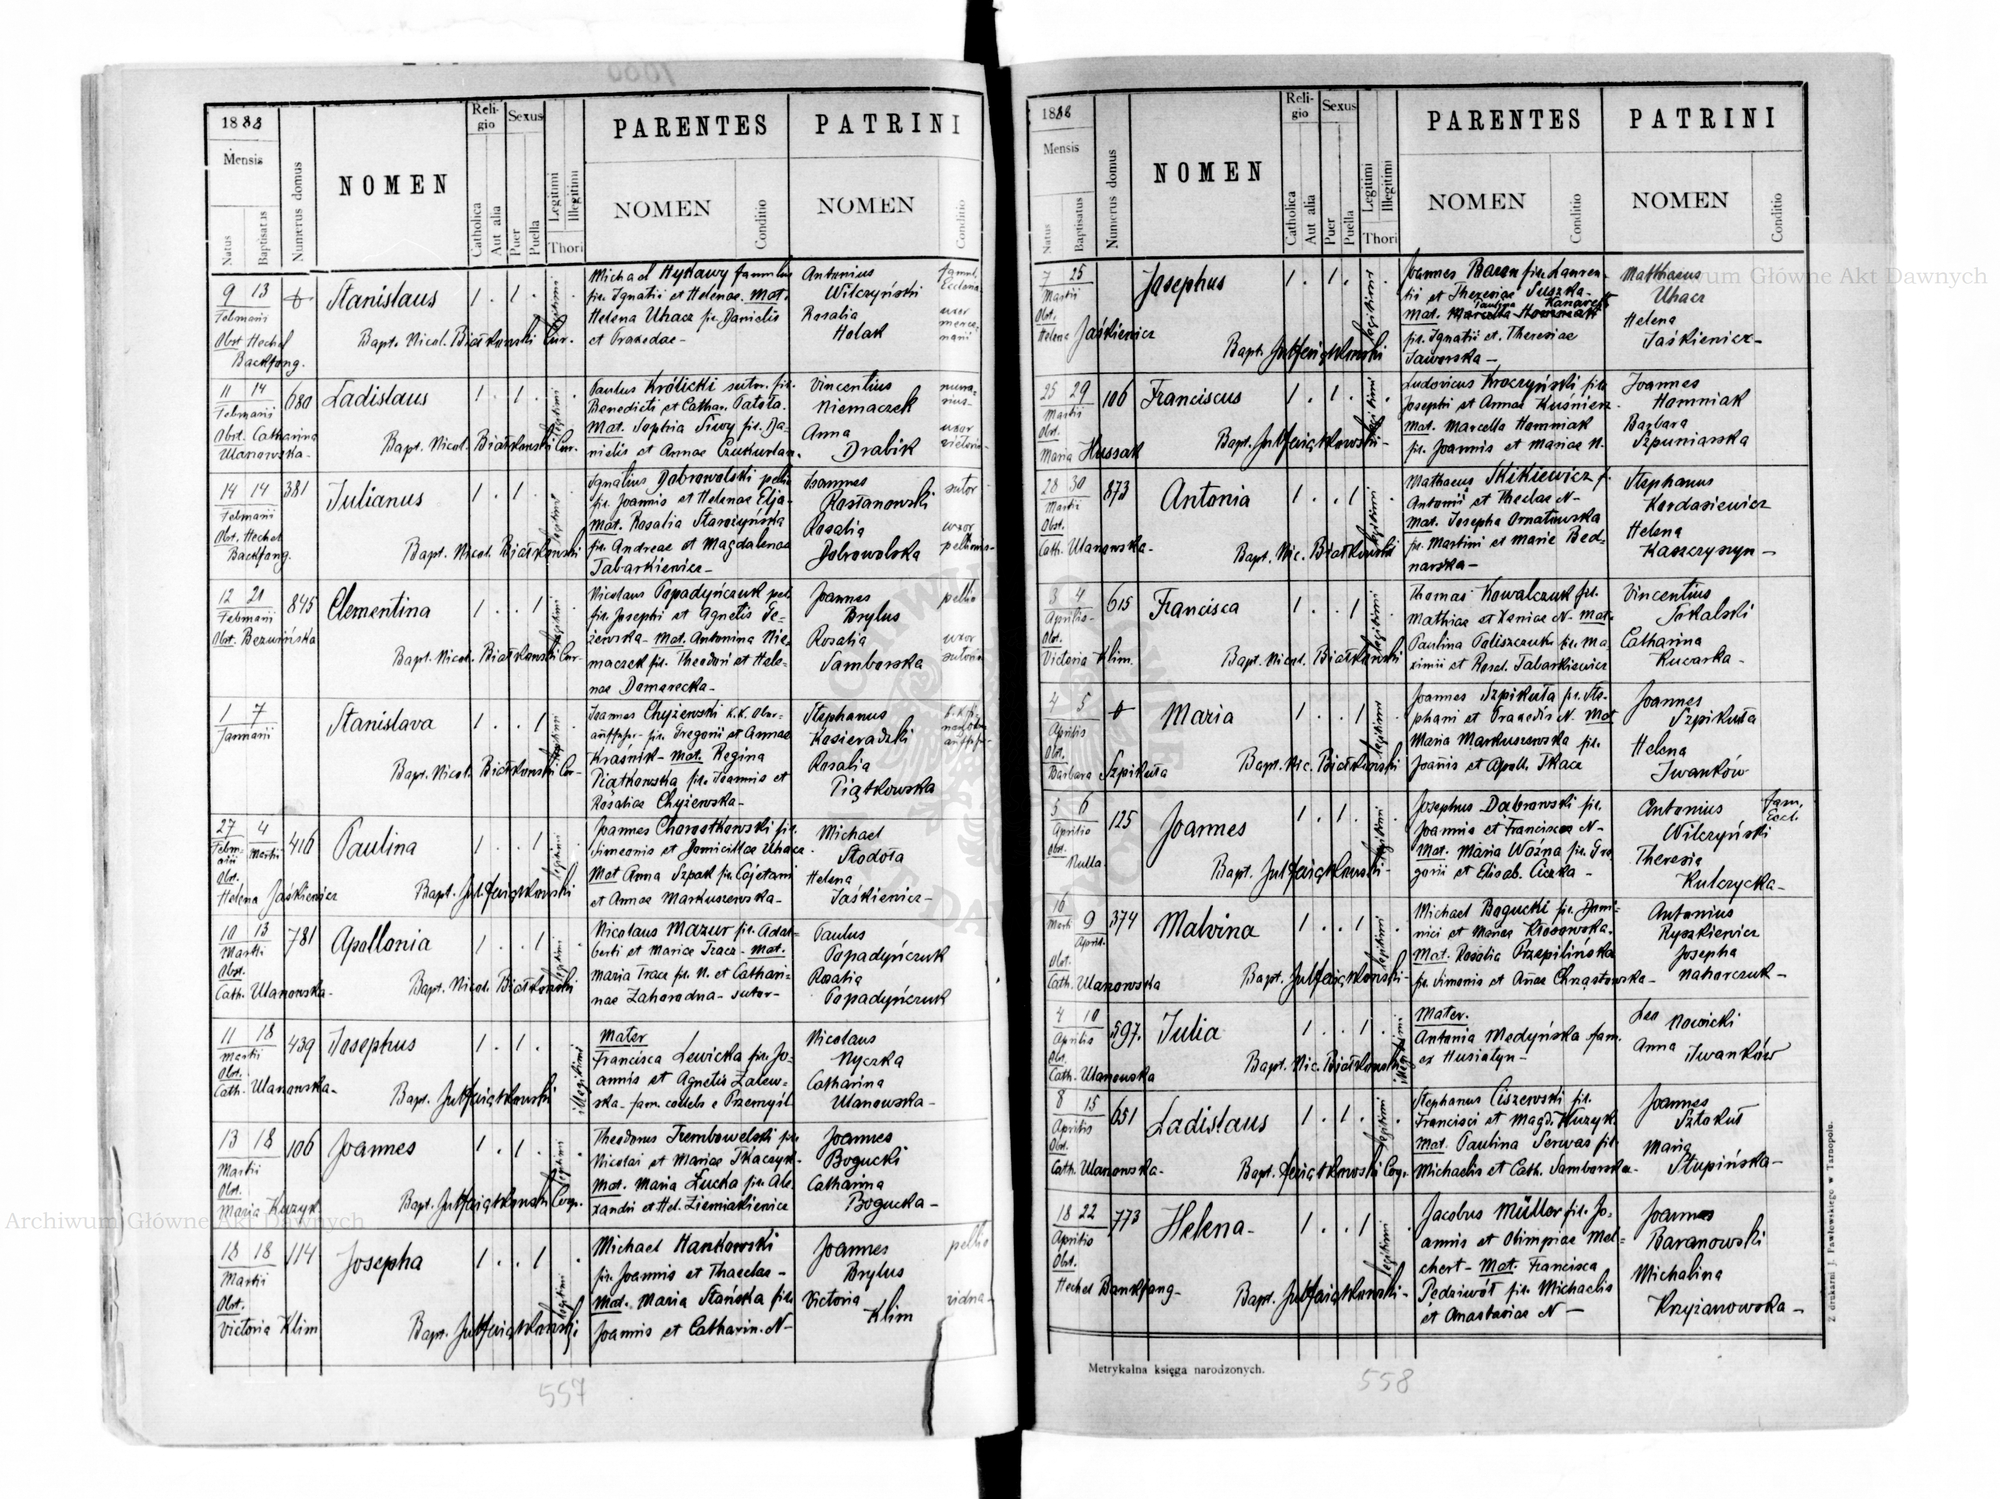 1888
Mensis
Natus
Baptisatus
Numerus domus
NOMEN
Religio
Catholica
Aut alia
Sexus
Puer
Puella
Legitimi
Illegitimi
Thori
PARENTES
NOMEN
Conditio
PATRINI
NOMEN
Conditio
9 13
Februarii
Obst. Hechel
Backfong.
Stanislaus
1 . 1 .
legitimi
Bapt. Nicol. Białkowski Cur.
Michael Hykawy famulus
fil. Ignatii et Helenae. Mat.
Helena Uhacz fil. Danielis
et Praxedae-
Antonius
Wilczyński
Rosalia
Holak
famul.
Eccles.
uxor
11 14
Februarii
680
Obst. Catharina
Ulanowska-
Ladislaus
1 . 1 .
legitimi
Bapt. Nicol. Białkowski Cur.
Paulus Królicki sutor. fil.
Benedicti et Cathar. Patoła.
Mat. Sophia Siwy fil. Da-
nielis et Annae
Vincentius
Niemaczek
Anna
Drabik
uxor
14 14
Februarii
381
Obst. Hechel
Backfong.
Julianus
1 . 1 .
legitimi
Bapt. Nicol. Białkowski
Ignatius Dobrowolski pellio
fil. Joannis et Helenae Elja-
Mat. Rosalia Starożyńska
fil. Andreae et Magdalenae
Tabarkiewicz-
Joannes
Rostanowski
Rosalia
Dobrowolska
sutor
uxor
pellionis-
12 21
Februarii
845
Obst. Bezwińska
Clementina
1 . . 1
legitimi
Bapt. Nicol. Białkowski Cur-
Nicolaus Popadyńczuk pel.
fil. Josephi et Agnetis Je-
żewska- Mat. Antonina Nie-
maczek fil. Theodori et Hele-
nae Domarecka-
Joannes
Brylus
Rosalia
Samborska
pellio
uxor
sutoris
1 7
Januarii
Stanislava
1 . . 1
legitimi
Bapt. Nicol. Białkowski Cur-
Joannes Chyżewski K.K. Ober-
aufseher- fil. Gregorii et Annae
Krasnik- Mat. Regina
Piątkowska fil. Joannis et
Rosaliae Chyżewska-
Stephanus
Kosieradzki
Rosalia
Piątkowska
27 4
Februarii Martii
416
Obst.
Helena Jaśkiewicz
Paulina
1 . . 1
legitimi
Bapt. Jul. Świątkowski
Joannes Chorostkowski fil.
Simeonis et Domicillae Uhacz
Mat. Anna Szpak fil. Cajetani
et Annae Markuszewska-
Michael
Stodoła
Helena
Jaśkiewicz-
10 13
Martii
781
Obst.
Cath. Ulanowska-
Apollonia
1 . . 1
legitimi
Bapt. Nicol. Białkowski
Nicolaus Mazur fil. Adal-
berti et Mariae Tracz- Mat.
Maria Tracz fil. N. et Cathari-
nae Zahorodna- sutor-
Paulus
Popadyńczuk
Rosalia
Popadyńczuk
11 18
Martii
439
Obst.
Cath. Ulanowska-
Josephus
1 . 1 .
illegitimi
Bapt. Jul. Świątkowski
Mater
Francisca Lewicka fil. Jo-
annis et Agnetis Zalew-
ska- fam. coelebs e Przemyśl
Nicolaus
Nyczka
Catharina
Ulanowska-
13 18
Martii
106
Obst.
Maria Kuzyk
Joannes
1 . 1 .
legitimi
Bapt. Jul. Świątkowski Coop.
Theodorus Trembowelski fil.
Nicolai et Mariae Tkaczyk-
Mat. Maria Łucka fil. Ale-
xandri et Hel. Ziemiakiewicz
Joannes
Bogucki
Catharina
Bogucka-
18 18
Martii
114
Obst.
Victoria Klim
Josepha
1 . . 1
legitimi
Bapt. Jul. Świątkowski
Michael Hankowski
fil. Joannis et Thaeclae-
Mat. Maria Stańska fil.
Joannis et Catharin. N-
Joannes
Brylus
Victoria
Klim
pellio
vidua-
557
1888
Mensis
Natus
Baptisatus
Numerus domus
NOMEN
Religio
Catholica
Aut alia
Sexus
Puer
Puella
Legitimi
Illegitimi
Thori
PARENTES
NOMEN
Conditio
PATRINI
NOMEN
Conditio
7 25
Martii
Obst.
Helena Jaśkiewicz
Josephus
1 . 1 .
legitimi
Bapt. Jul. Świątkowski
Joannes Baran fil. Lauren-
tii et Theresiae Suszka-
Paulina Kanarek
Mat. Marcella Homniak
fil. Ignatii et Theresiae
Jaworska-
Matthaeus
Uhacz
Helena
Jaśkiewicz-
25 29
Martii
106
Obst.
Maria Hussak
Franciscus
1 . 1 .
legitimi
Bapt. Jul. Świątkowski-
Ludovicus Kroczyński fil.
Josephi et Annae Kuśnierz
Mat. Marcella Homniak
fil. Joannis et Mariae N-
Joannes
Homniak
Barbara
Szpuniarska
28 30
Martii
873
Obst.
Cath. Ulanowska-
Antonia
1 . . 1
legitimi
Bapt. Nic. Białkowski
Mathaeus Skikiewicz f.
Antonii et Theclae N-
Mat. Josepha Ornatowska
fil. Martini et Marie Bed-
narska-
Stephanus
Kordasiewicz
Helena
Kaszczyszyn-
3 4
Aprilis
615
Obst.
Victoria Klim.
Francisca
1 . . 1
legitimi
Bapt. Nicol. Białkowski
Thomas Kowalczuk fil.
Mathiae et Xeniae N- Mat.
Paulina Poliszczuk fil. Ma-
ximii et Rosal. Tabarkiewicz
Vincentius
Sokalski
Catharina
Kucarka-
4 5
Aprilis
Obst.
Barbara Szpikuła
Maria
1 . . 1
legitimi
Bapt. Nic. Białkowski
Joannes Szpikuła fil. Ste-
phani et Praxedis N. Mat
Maria Markuszewska fil.
Joannis et Apoll. Tkacz
Joannes
Szpikuła
Helena
Iwanków
5 6
Aprilis
125
Obst.
Nulla.
Joannes
1 . 1 .
legitimi
Bapt. Jul. Świątkowski-
Josephus Dąbrowski fil.
Joannis et Franciscae N-
Mat. Maria Woźna fil. Gre-
gorii et Elisab. Ciczka-
Antonius
Wilczyński
Theresia
Kulczycka-
fam.
Eccl.
16
Marti 9
Aprilis
374
Obst.
Cath. Ulanowska
Malvina
1 . . 1
legitimi
Bapt. Jul. Świątkowski-
Michael Bogucki fil. Domi-
nici et Mariae Kłosowska.
Mat. Rosalia Przepilińska
fil. Simonis et Annae Chrząstowska-
Antonius
Ryszkiewicz
Josepha
Naharczuk-
4 10
Aprilis
597.
Obst.
Cath. Ulanowska
Julia
1 . . 1
illegitimi
Bapt. Nic. Białkowski
Mater.
Antonia Medyńska fam.
ex Husiatyn-
Leo Nowicki
Anna Iwanków
8 15
Aprilis
651
Obst.
Cath. Ulanowska-
Ladislaus
1 . 1 .
legitimi
Bapt. Świątkowski Coop.
Stephanus Ciszewski fil.
Francisci et Magd. Kuzyk.
Mat. Paulina Serwas fil.
Michaelis et Cath. Samborska-
Joannes
Sztokuś
Maria
Stupińska-
18 22
Aprilis
773
Obst.
Hechel Bankfong-
Helena-
1 . . 1
legitimi
Bapt. Jul. Świątkowski-
Jacobus Müller fil. Jo-
annis et Olimpiae Mel-
chert- Mat. Francisca
Pędziwół fil. Michaelis
et Anastasiae N-
Joannes
Baranowski
Michalina
Krzyżanowska-
Metrykalna księga narodzonych.
558
Z drukarni J. Pawłowskiego w Tarnopolu.
Archiwum Główne Akt Dawnych
Archiwum Główne Akt Dawnych